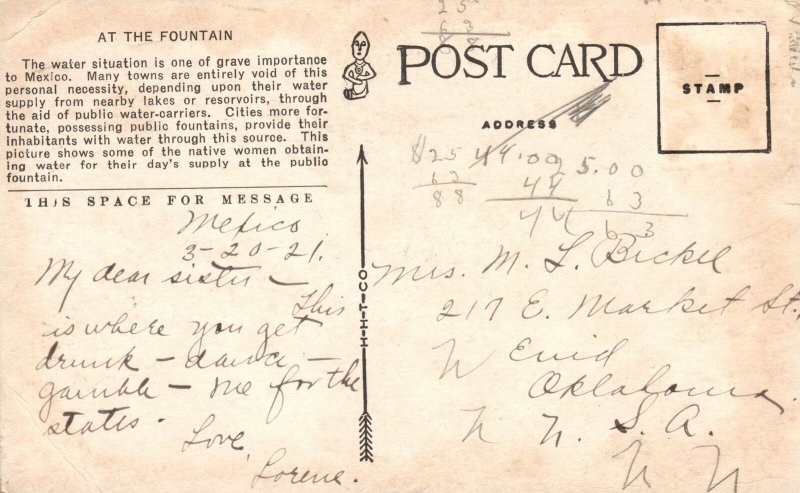 AT THE FOUNTAIN
The water situation is one of grave importance
to Mexico. Many towns are entirely void of this
personal necessity, depending upon their water
supply from nearby lakes or resorvoirs, through
the aid of public water-carriers. Cities more for-
tunate, possessing public fountains, provide their
inhabitants with water through this source. This
picture shows some of the native women obtain-
ing water for their day's supply at the public
fountain.
THIS SPACE FOR MESSAGE
Mexico
3-20-21.
My dear sister –
This
is where you get
drunk – dance –
gamble – me for the
states.
Love,
Lorene.
H-H-T-CO
POST CARD
ADDRESS
STAMP
25
63
88
$25
63
88
44.00
44
44
25.00
63
63
Mrs. M. L. Bickel
217 E. Market St.,
Enid
Oklahoma.
U. S. A.